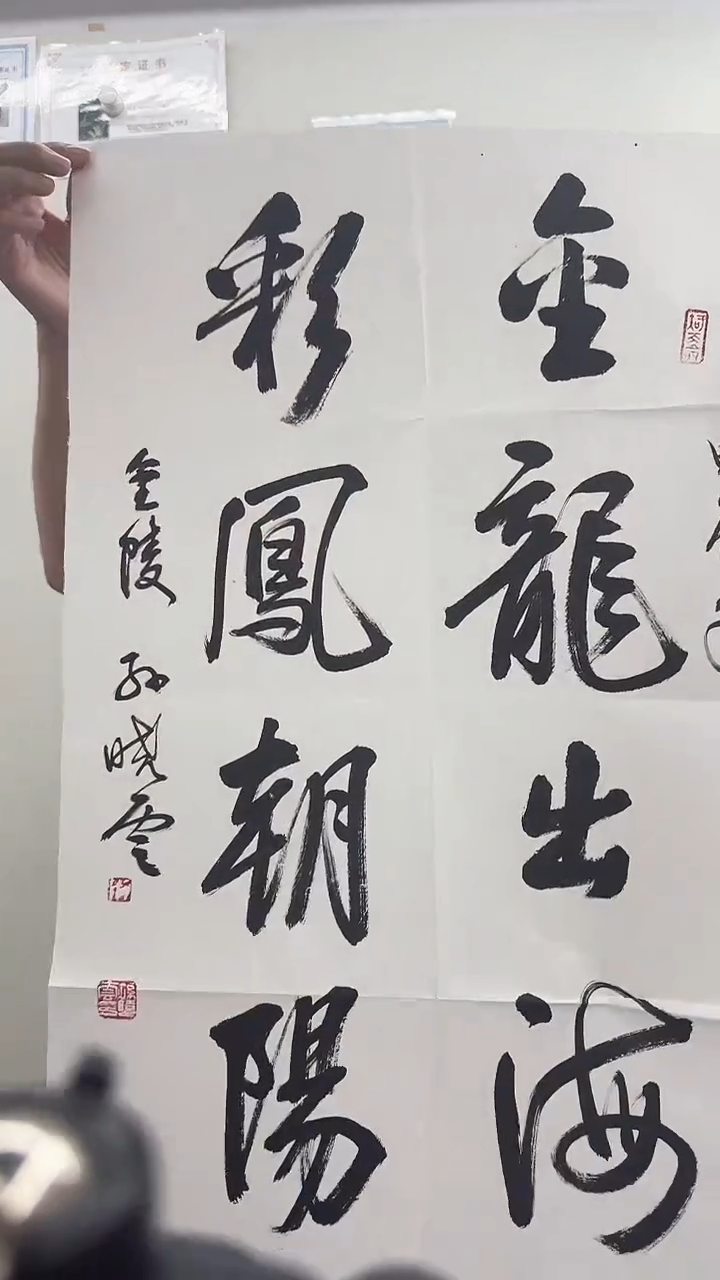 金龍出海
彩鳳朝陽
金陵 孙晓雲
证书